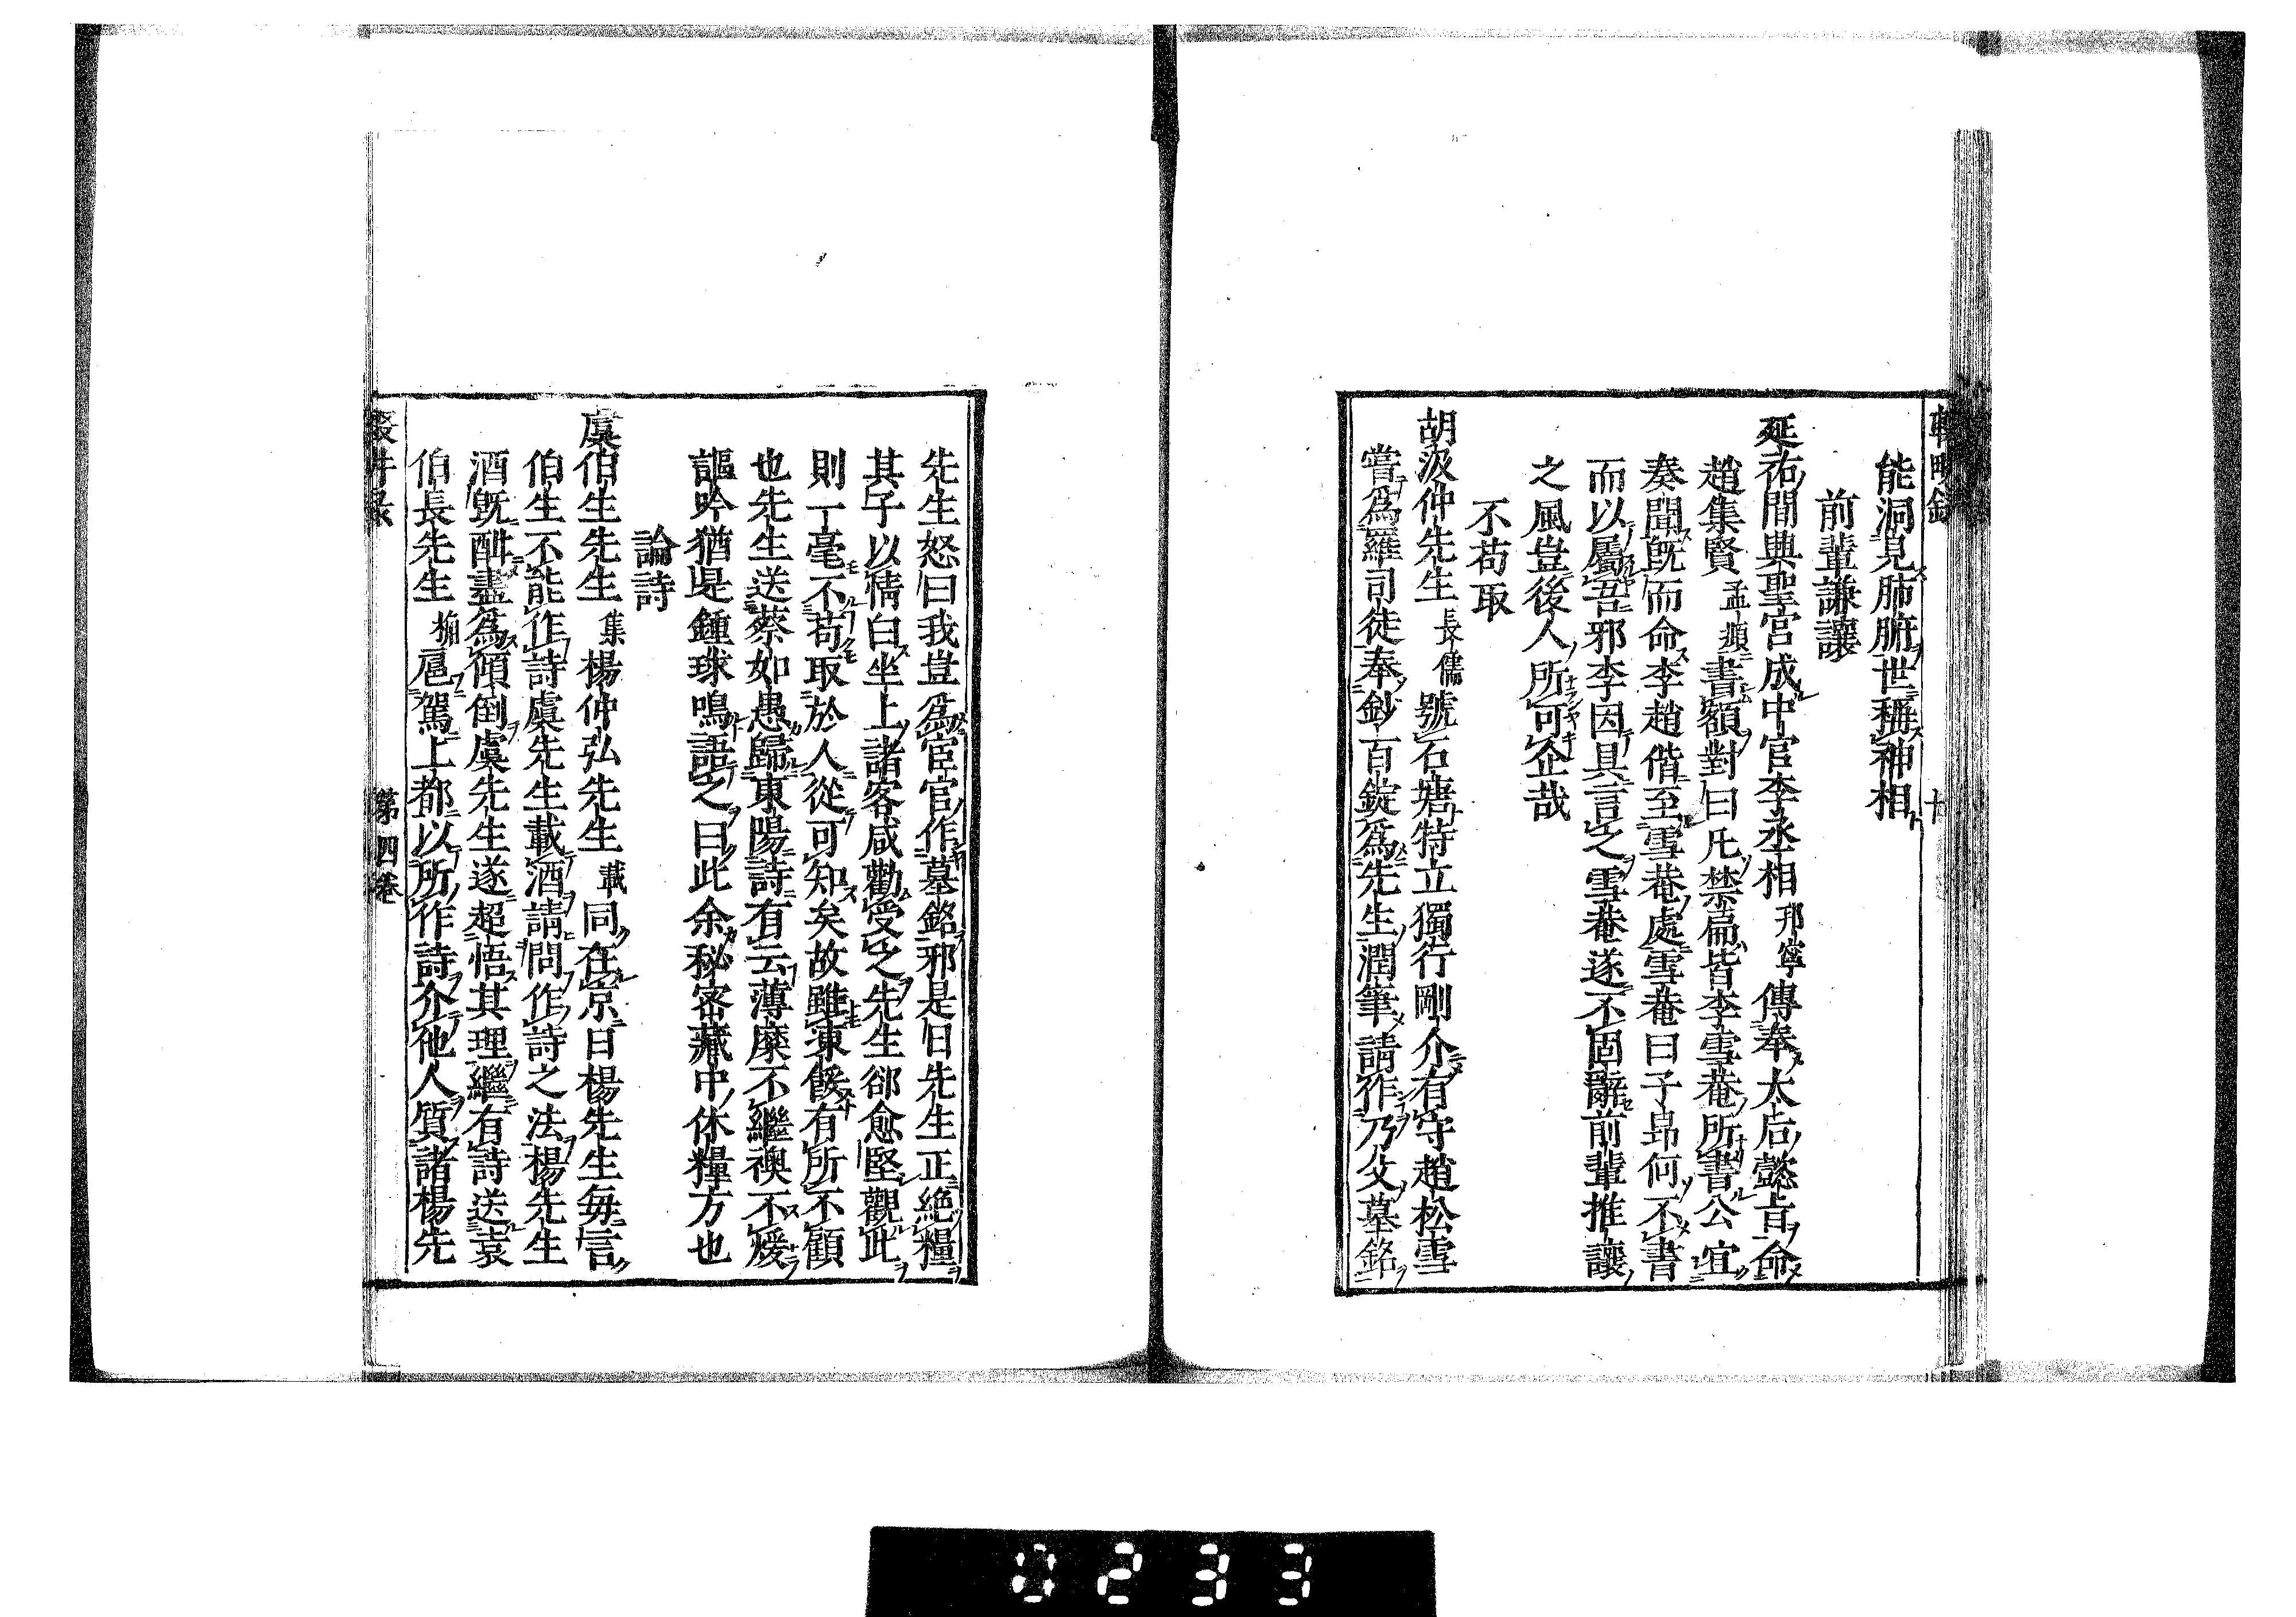 能洞見肺腑世稱神相
前輩謙讓
延祐間興聖宮成中官李丞相邦寧傳奉太后懿旨命
趙集賢孟頫書額對曰凡禁扁皆李雪菴所書公宜
奏聞旣而命李趙偕至雪菴處雪菴曰子昻何不書
而以屬吾邪李因具言之雪菴遂不固辭前輩推讓
之風豈後人所可企哉
不苟取
胡汲仲先生長儒號石塘特立獨行剛介有守趙松雪
嘗爲羅司徒奉鈔百錠爲先生潤筆請作乃父墓銘
先生怒曰我豈爲宦官作墓銘邪是日先生正絶糧
其子以情白坐上諸客咸勸受之先生郤愈堅觀此
則一毫不苟取於人從可知矣故雖凍餒有所不顧
也先生送蔡如愚歸東陽詩有云薄糜不繼襖不煖
謳吟猶是鍾球鳴語之曰此余秘密藏中休糧方也
論詩
虞伯生先生集楊仲弘先生載同在京日楊先生每言
伯生不能作詩虞先生載酒請問作詩之法楊先生
酒旣酣盡爲傾倒虞先生遂超悟其理繼有詩送袁
伯長先生桷扈駕上都以所作詩介他人質諸楊先
第四卷
0233